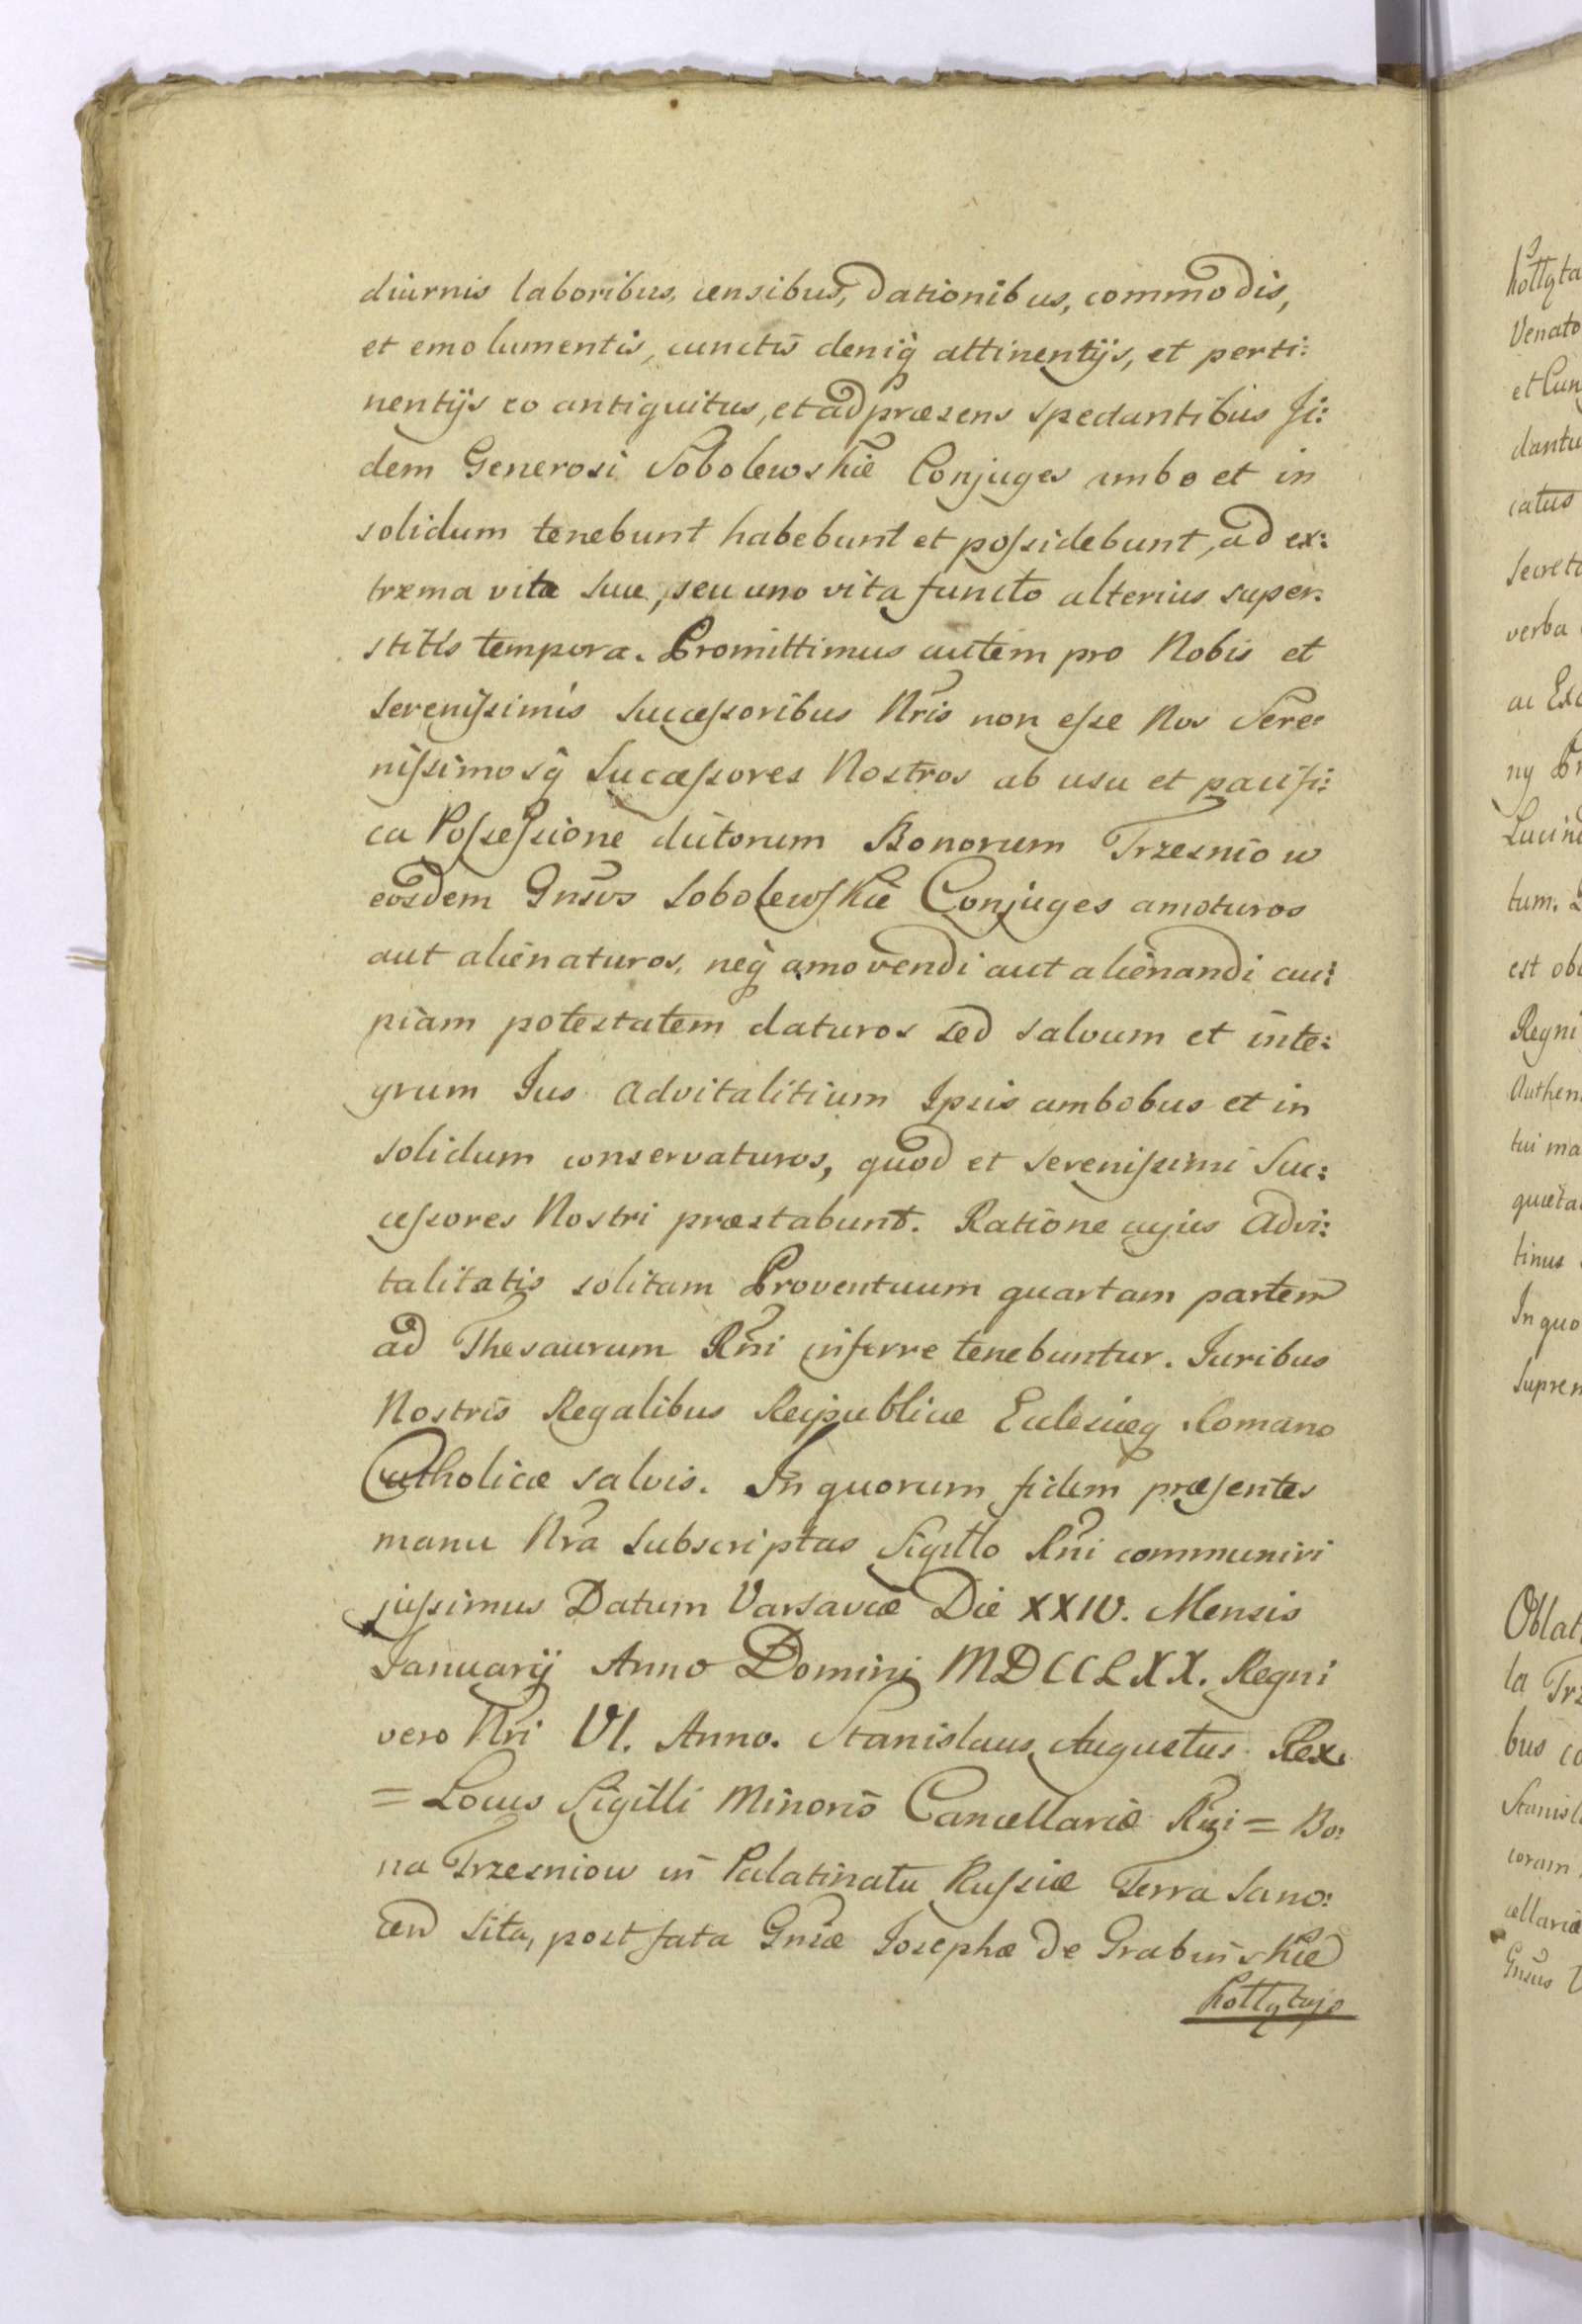 diurnis laboribus, censibus, dationibus, commodis,
et emolumentis, cunctis deniq attinentijs, et perti:
nentijs eo antiquitus, et ad præsens spectantibus Ji:
dem Generosi Sobolewskie Conjuges ambo et in
solidum tenebunt habebunt et possidebunt, ad ex:
trema vitæ suæ, seu uno vita functo alterius super:
stitis tempora. Promittimus autem pro Nobis et
Serenissimis Successoribus Nris non esse Nos Sere:
nissimosq Successores Nostros ab usu et pacifi:
ca Possessione dictorum Bonorum Trzesniow
eosdem Gnsos Sobolewskie Conjuges amoturos
aut alienaturos, neq amovendi aut alienandi cui:
piam potestatem daturos sed salvum et inte:
grum Jus Advitalitium Ipsis ambobus et in
solidum conservaturos, quod et Serenissimi Suc:
cessores Nostri præstabunt. Ratione cujus Advi:
talitatis solitam Proventuum quartam partem
ad Thesaurum Rni inferre tenebuntur. Juribus
Nostris Regalibus Reipublicæ Ecclesiæq Romano
Catholicæ salvis. In quorum fidem præsentes
manu Nra Subscriptas Sigillo Rni communiri
jussimus Datum Varsaviæ Die XXIV. Mensis
Januarij Anno Domini MDCCLXX. Regni
vero Nri VI. Anno. Stanislaus Augustus Rex.
= Locus Sigilli Minoris Cancellariæ Rni = Bo:
na Trzesniow in Palatinatu Russiæ Terra Sano:
cen sita, post fata Gnsæ Josephæ de Grabinskie
Kołłątajo
Kołłąta
Venato
et Cun
dantu
catus
Secret
verba
ac Exc
ny Pr
Lucin
tum.
est ob
Regni
Authen
tui ma
quieta
tinus
In quo
Suprem
Oblat
la Trz
bus co
Stanisl
coram
cellariæ
Gnsus